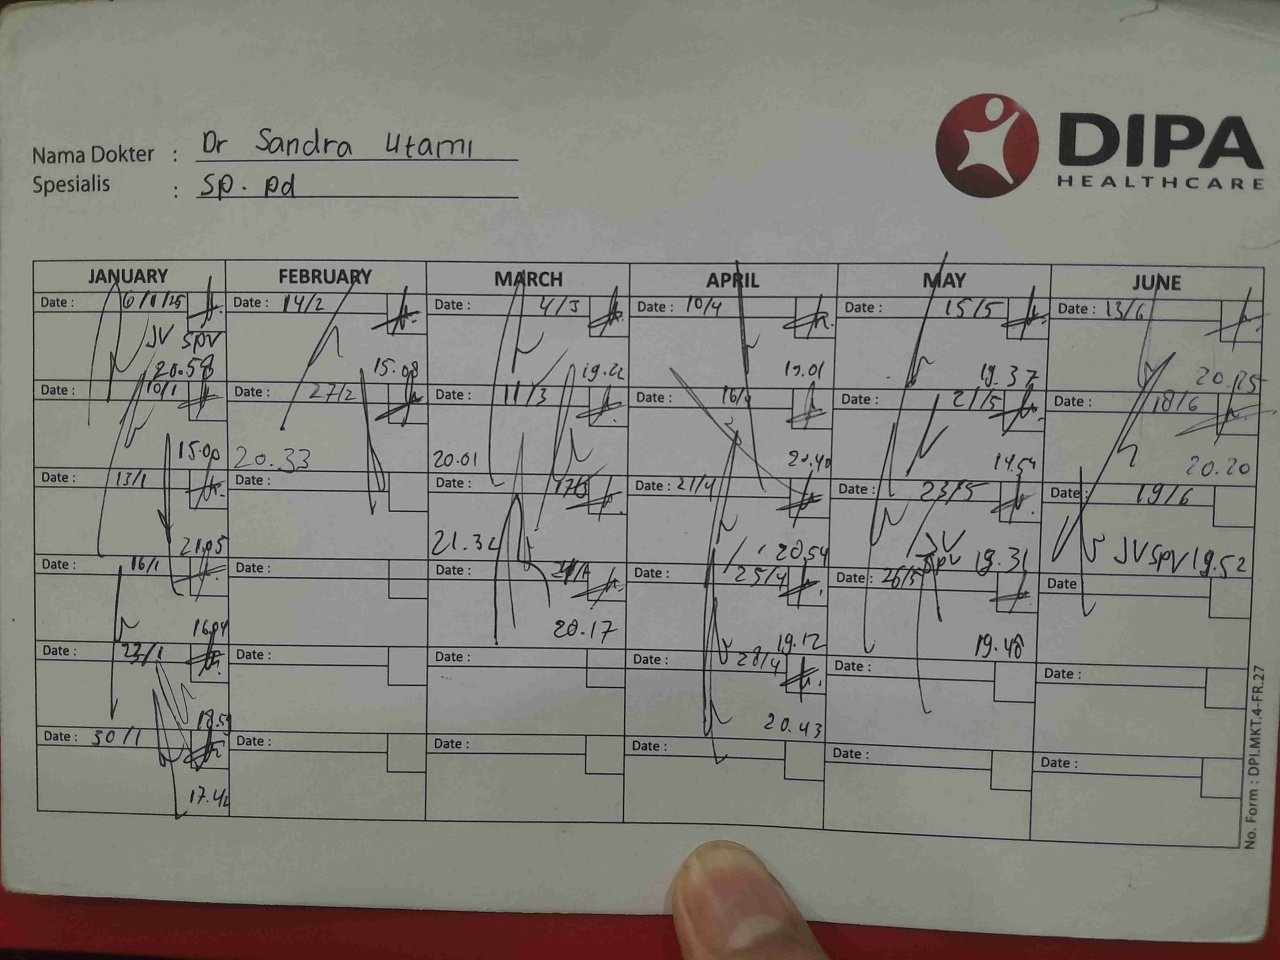 DIPA
HEALTHCARE
Nama Dokter : Dr Sandra Utami
Spesialis : Sp. pd
JANUARY FEBRUARY MARCH APRIL MAY JUNE
Date : 6/1/25 Date : 14/2 Date : 4/3 Date : 10/4 Date : 15/5 Date : 13/6
JV SPV
20.58 15.08 19.01 19.37 20.25
Date : 10/1 Date : 27/2 Date : 11/3 Date : Date : 21/5 Date : 18/6
15.00 20.33 20.01 20.40 14.54 20.20
Date : 13/1 Date : Date : Date : 21/4 Date : 23/5 Date : 19/6
21.05 20.54 JV SPV 19.31 JV SPV 19.52
Date : 16/1 Date : Date : Date : 25/4 Date : 26/5 Date :
20.17 19.12 19.48
Date : Date : Date : Date : 28/4 Date : Date :
20.43
Date : 30/1 Date : Date : Date : Date : Date :
No. Form : DPI.MKT.4-FR.27